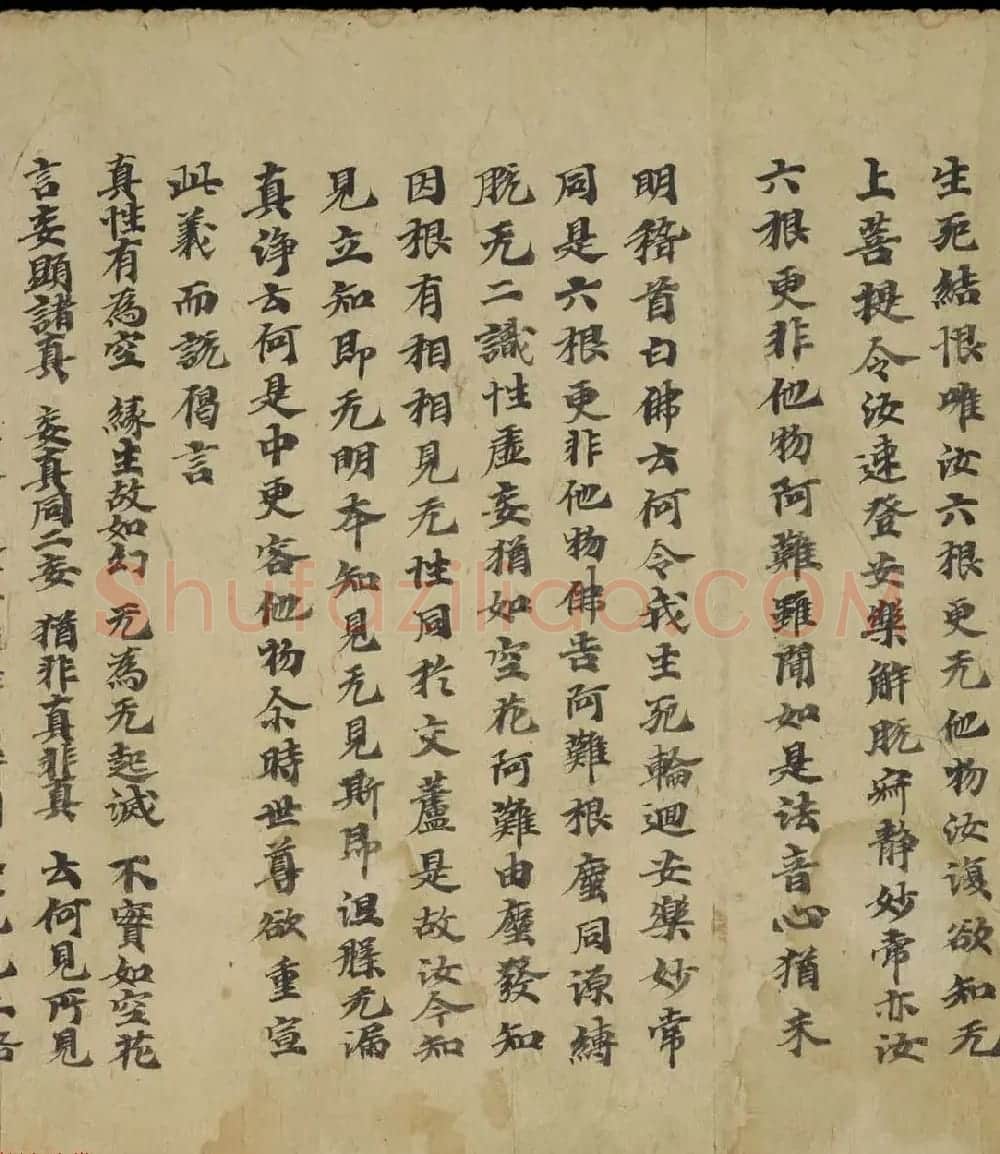 生死結恨唯汝六根更无他物汝復欲知无
上菩提令汝速登安樂解脫寂静妙常亦汝
六根更非他物阿難雖聞如是法音心猶未
明稽首白佛云何令我生死輪迴安樂妙常
同是六根更非他物佛告阿難根塵同源縛
脫无二識性虛妄猶如空花阿難由塵發知
因根有相相見无性同於交蘆是故汝今知
見立知即无明本知見无見斯即涅槃无漏
真淨云何是中更容他物尒時世尊欲重宣
此義而說偈言
真性有為空 緣生故如幻 无為无起滅 不實如空花
言妄顯諸真 妄真同二妄 猶非真非真 云何見所見
Shufaziliao.COM